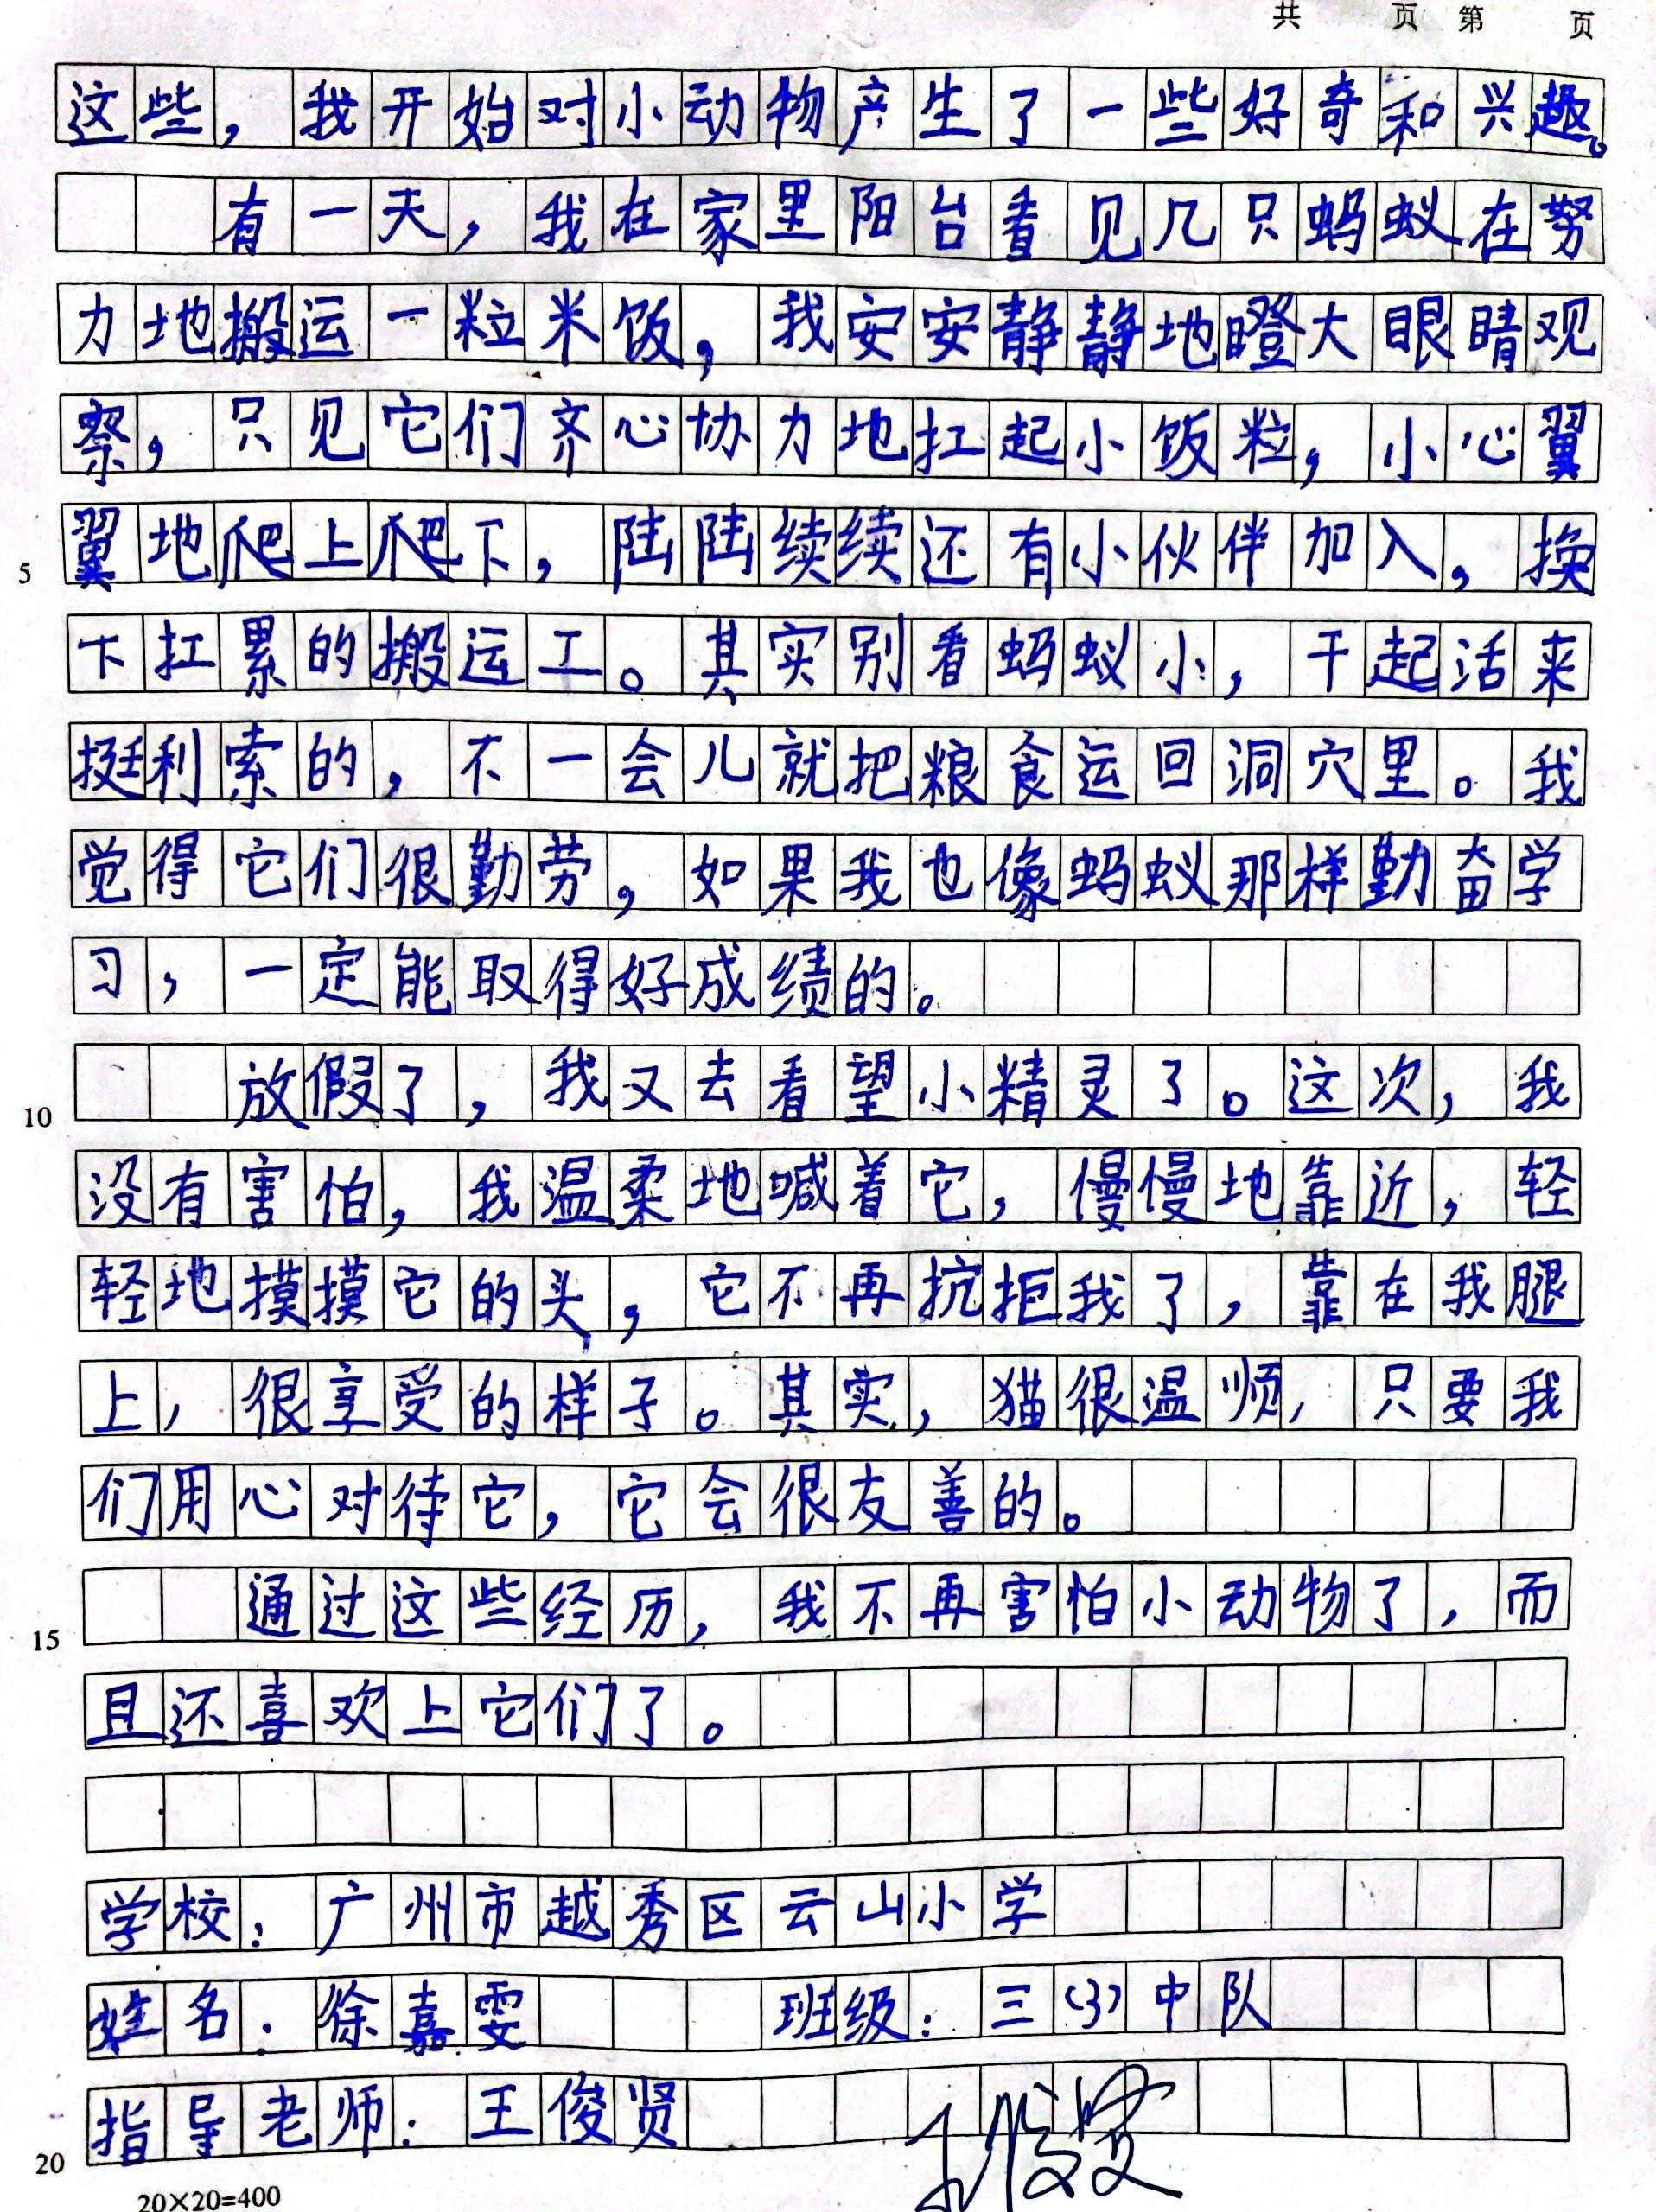 共 页 第 页
这些，我开始对小动物产生了一些好奇和兴趣。
有一天，我在家里阳台看见几只蚂蚁在努
力地搬运一粒米饭，我安安静静地瞪大眼睛观
察，只见它们齐心协力地扛起小饭粒，小心翼
翼地爬上爬下，陆陆续续还有小伙伴加入，换
5
下扛累的搬运工。其实别看蚂蚁小，干起活来
挺利索的，不一会儿就把粮食运回洞穴里。我
觉得它们很勤劳，如果我也像蚂蚁那样勤奋学
习，一定能取得好成绩的。
放假了，我又去看望小精灵了。这次，我
10
没有害怕，我温柔地喊着它，慢慢地靠近，轻
轻地摸摸它的头，它不再抗拒我了，靠在我腿
上，很享受的样子。其实，猫很温顺，只要我
们用心对待它，它会很友善的。
通过这些经历，我不再害怕小动物了，而
15
且还喜欢上它们了。
学校：广州市越秀区云山小学
姓名：徐嘉雯 班级：三（3）中队
指导老师：王俊贤 王俊贤
20
20×20=400